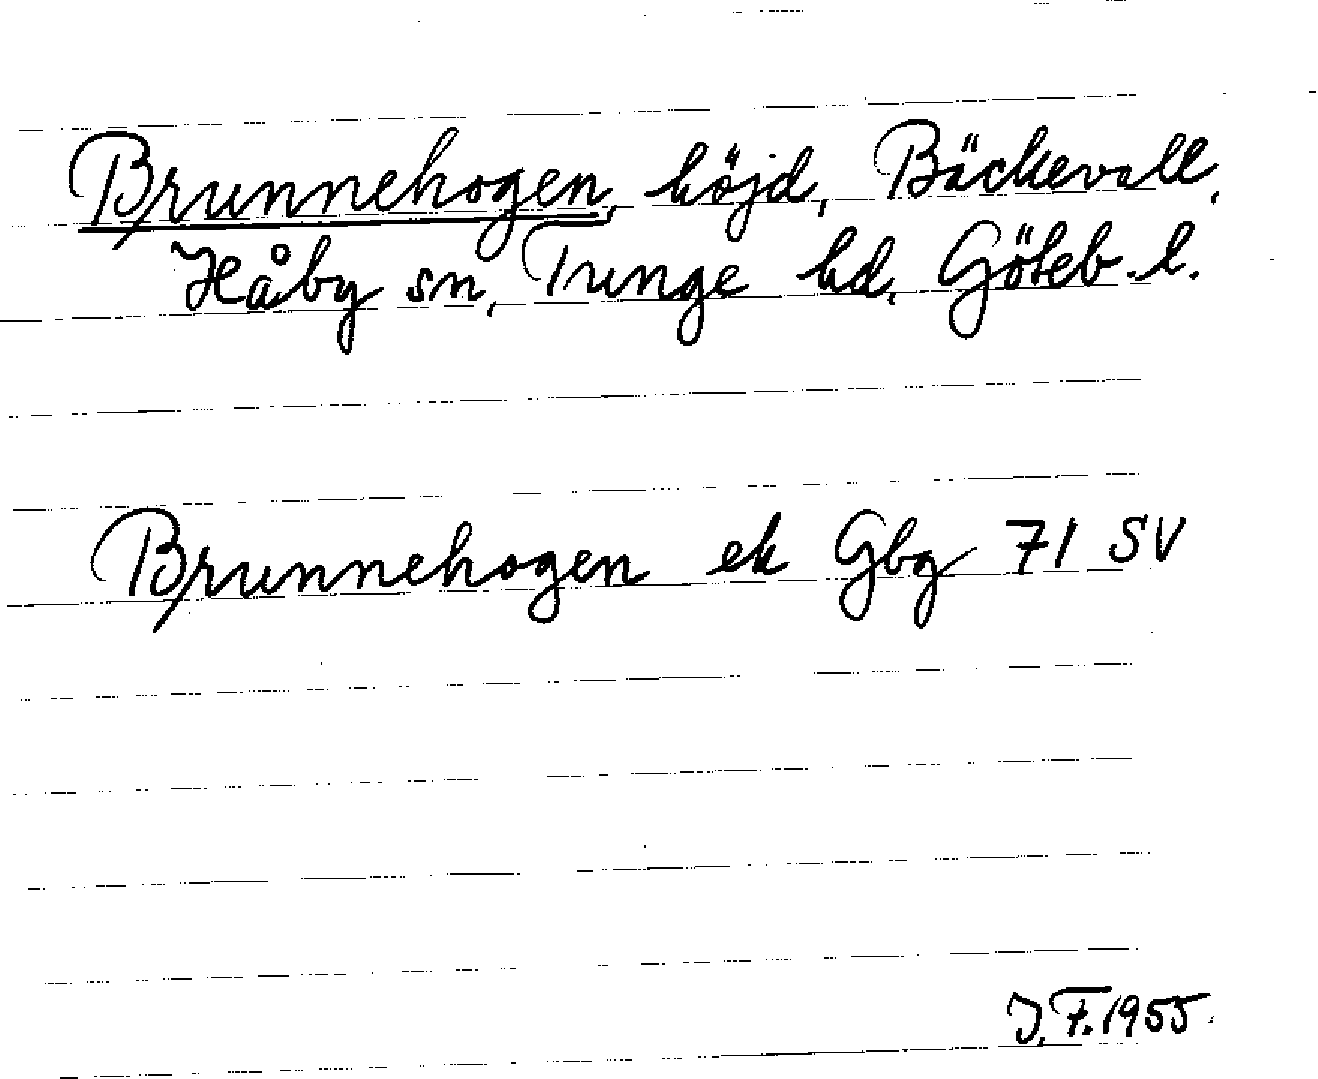 Brunnehogen, höjd, Bäckevall,
Håby sn, Tunge hd, Göteb. l.
Brunnehogen ek Gbg 71 SV
J. F. 1955.